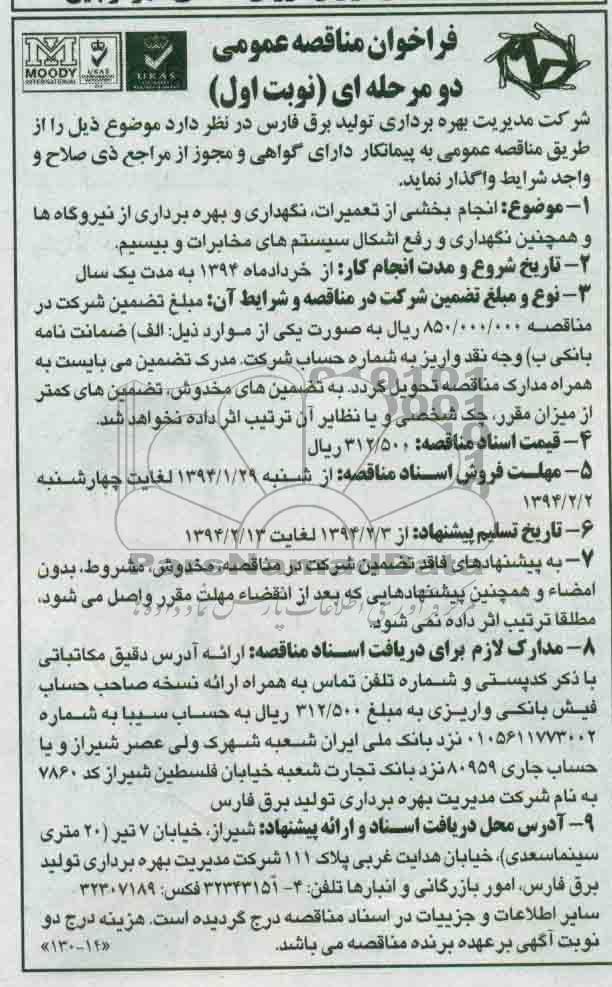 فراخوان مناقصه عمومی
دو مرحله ای (نوبت اول)
MOODY
INTERNATIONAL
UKAS
UKAS
شرکت مدیریت بهره برداری تولید برق فارس در نظر دارد موضوع ذیل را از
طریق مناقصه عمومی به پیمانکار دارای گواهی و مجوز از مراجع ذی صلاح و
واجد شرایط واگذار نماید.
۱- موضوع: انجام بخشی از تعمیرات، نگهداری و بهره برداری از نیروگاه ها
و همچنین نگهداری و رفع اشکال سیستم های مخابرات و بیسیم.
۲- تاریخ شروع و مدت انجام کار: از خردادماه ۱۳۹۴ به مدت یک سال
۳- نوع و مبلغ تضمین شرکت در مناقصه و شرایط آن: مبلغ تضمین شرکت در
مناقصه ۸۵۰/۰۰۰/۰۰۰ ریال به صورت یکی از موارد ذیل: الف) ضمانت نامه
بانکی ب) وجه نقد واریز به شماره حساب شرکت. مدرک تضمین می بایست به
همراه مدارک مناقصه تحویل گردد. به تضمین های مخدوش، تضمین های کمتر
از میزان مقرر، چک شخصی و یا نظایر آن ترتیب اثر داده نخواهد شد.
۴- قیمت اسناد مناقصه: ۳۱۲/۵۰۰ ریال
۵- مهلت فروش اسناد مناقصه: از شنبه ۱۳۹۴/۱/۲۹ لغایت چهارشنبه
۱۳۹۴/۲/۲
۶- تاریخ تسلیم پیشنهاد: از ۱۳۹۴/۲/۳ لغایت ۱۳۹۴/۲/۱۳
۷- به پیشنهادهای فاقد تضمین شرکت در مناقصه، مخدوش، مشروط، بدون
امضاء و همچنین پیشنهادهایی که بعد از انقضاء مهلت مقرر واصل می شود،
مطلقا ترتیب اثر داده نمی شود.
۸- مدارک لازم برای دریافت اسناد مناقصه: ارائه آدرس دقیق مکاتباتی
با ذکر کدپستی و شماره تلفن تماس به همراه ارائه نسخه صاحب حساب
فیش بانکی واریزی به مبلغ ۳۱۲/۵۰۰ ریال به حساب سیبا به شماره
۰۱۰۵۶۱۱۷۷۳۰۰۲ نزد بانک ملی ایران شعبه شهرک ولی عصر شیراز و یا
حساب جاری ۸۰۹۵۹ نزد بانک تجارت شعبه خیابان فلسطین شیراز کد ۷۸۶۰
به نام شرکت مدیریت بهره برداری تولید برق فارس
۹- آدرس محل دریافت اسناد و ارائه پیشنهاد: شیراز، خیابان ۷ تیر (۲۰ متری
سینماسعدی)، خیابان هدایت غربی پلاک ۱۱۱ شرکت مدیریت بهره برداری تولید
برق فارس، امور بازرگانی و انبارها تلفن: ۴- ۳۲۳۴۳۱۵۱ فکس: ۳۲۳۰۷۱۸۹
سایر اطلاعات و جزییات در اسناد مناقصه درج گردیده است. هزینه درج دو
نوبت آگهی برعهده برنده مناقصه می باشد. «۱۳۰-۱۴»
ParsNamadData